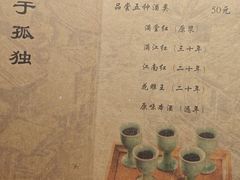 于孤独
品尝五种酒类 50元
满堂红（原浆）
满江红（三十年）
江南红（二十年）
花雕王（二十年）
原味本酒（隔年）